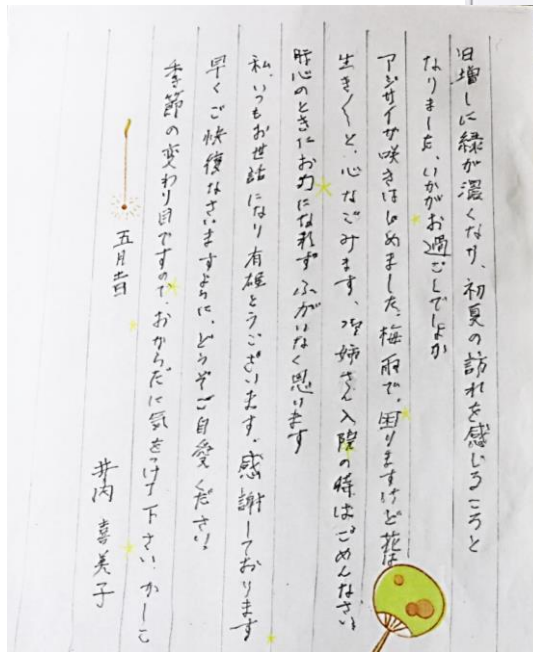 日増しに緑が濃くなり、初夏の訪れを感じるころと
なりました、いかがお過ごしでしょか
アジサイが咲きはじめました、梅雨で、困りますけど花は
生き〱と、心なごみます、御姉さん入院の時はごめんなさい、
肝心のときにお力になれずふがいなく思います
私、いつもお世話になり有難とうございます。感謝しております
早くご快復なさいますように、どうぞご自愛ください。
季節の変わり目ですので、おからだに気をつけて下さい、かしこ
五月吉日
井内 喜美子